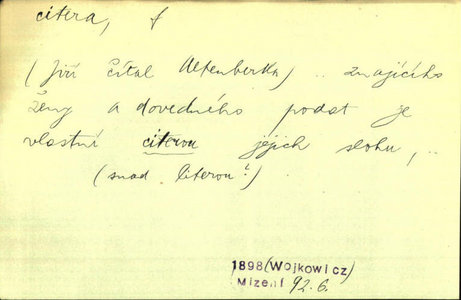 citera, f
(Jiří čítal Altenberka) .. znajícího
ženy a dovedného podat je
vlastní citerou jejich slohu, ..
(snad "literou"?)
1898 (Wojkowicz)
Mizení 92.6.